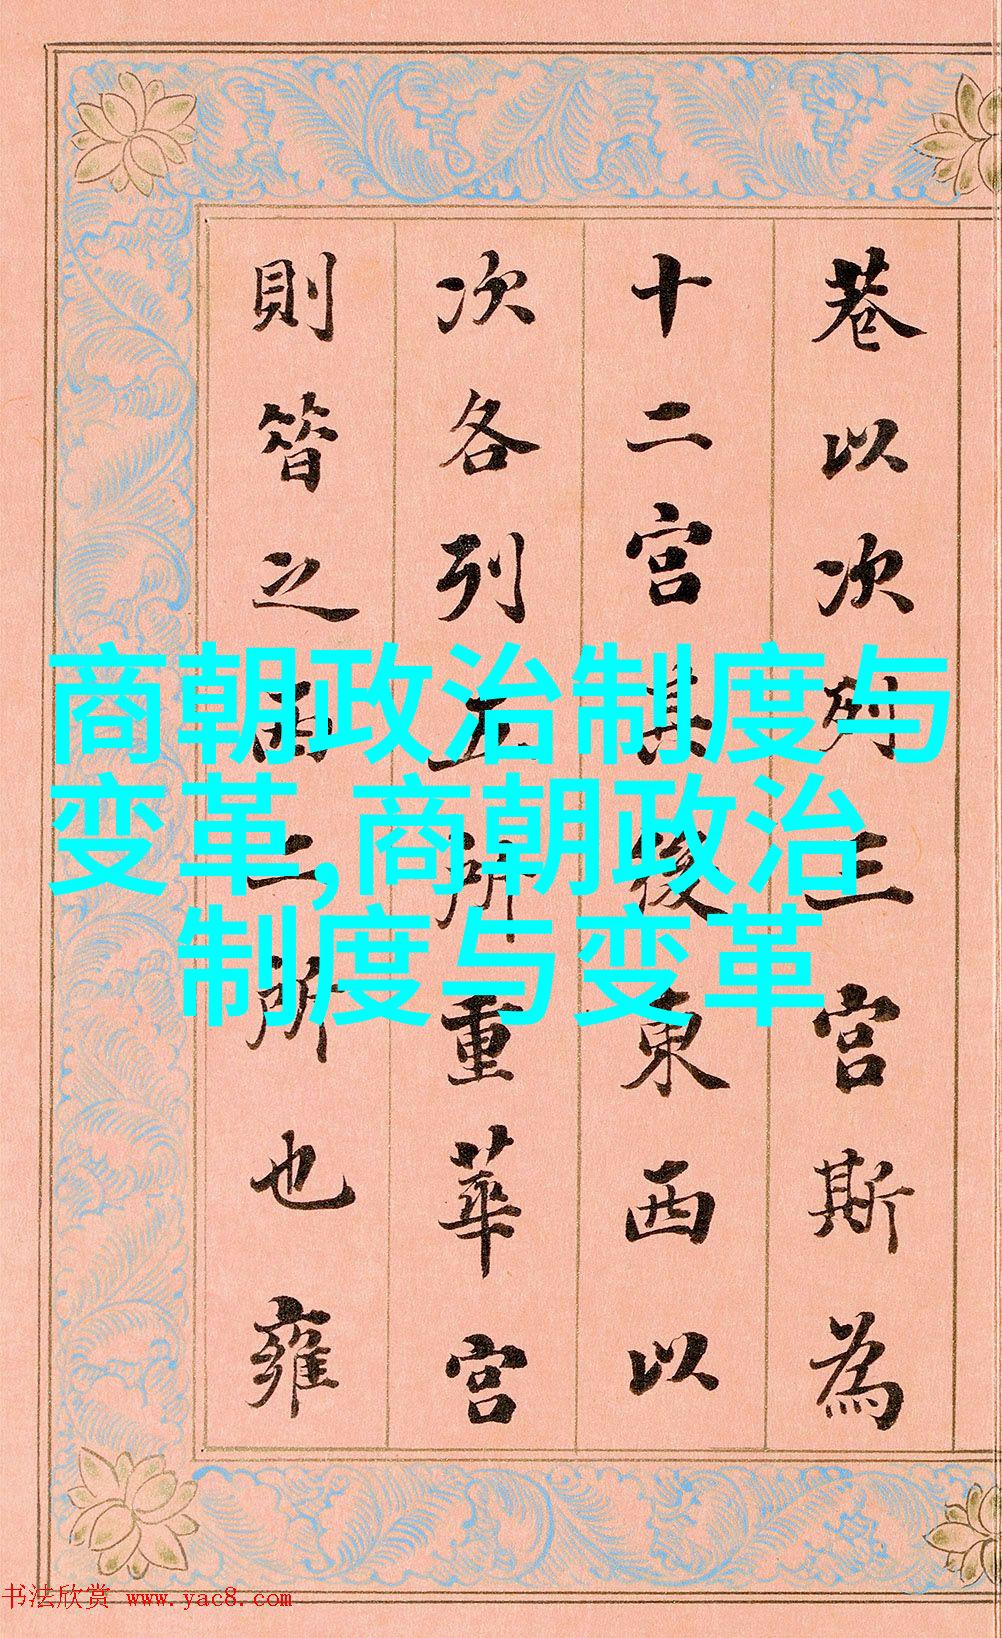 巷以次列三宫斯為
十二宫其後東西以
次各列五所重華宫
則昝之両二所也雍
商朝政治制度与
变革,商朝政治
制度与变革
书法欣赏 www.yac8.com